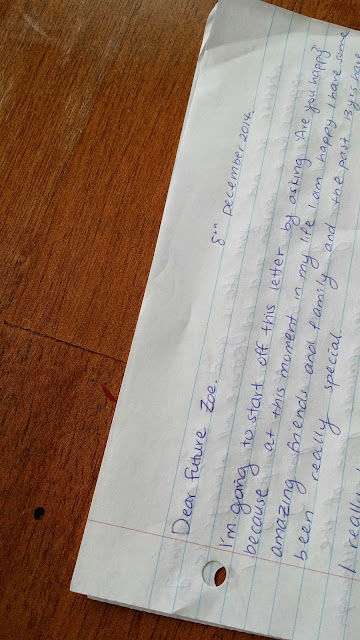 8th December 2014.
Dear Future Zoe.
I'm going to start off this letter by asking 'Are you happy?'
because at this moment in my life I am happy. I have some
amazing friends and family and the past 13yrs have
been really special.
I really